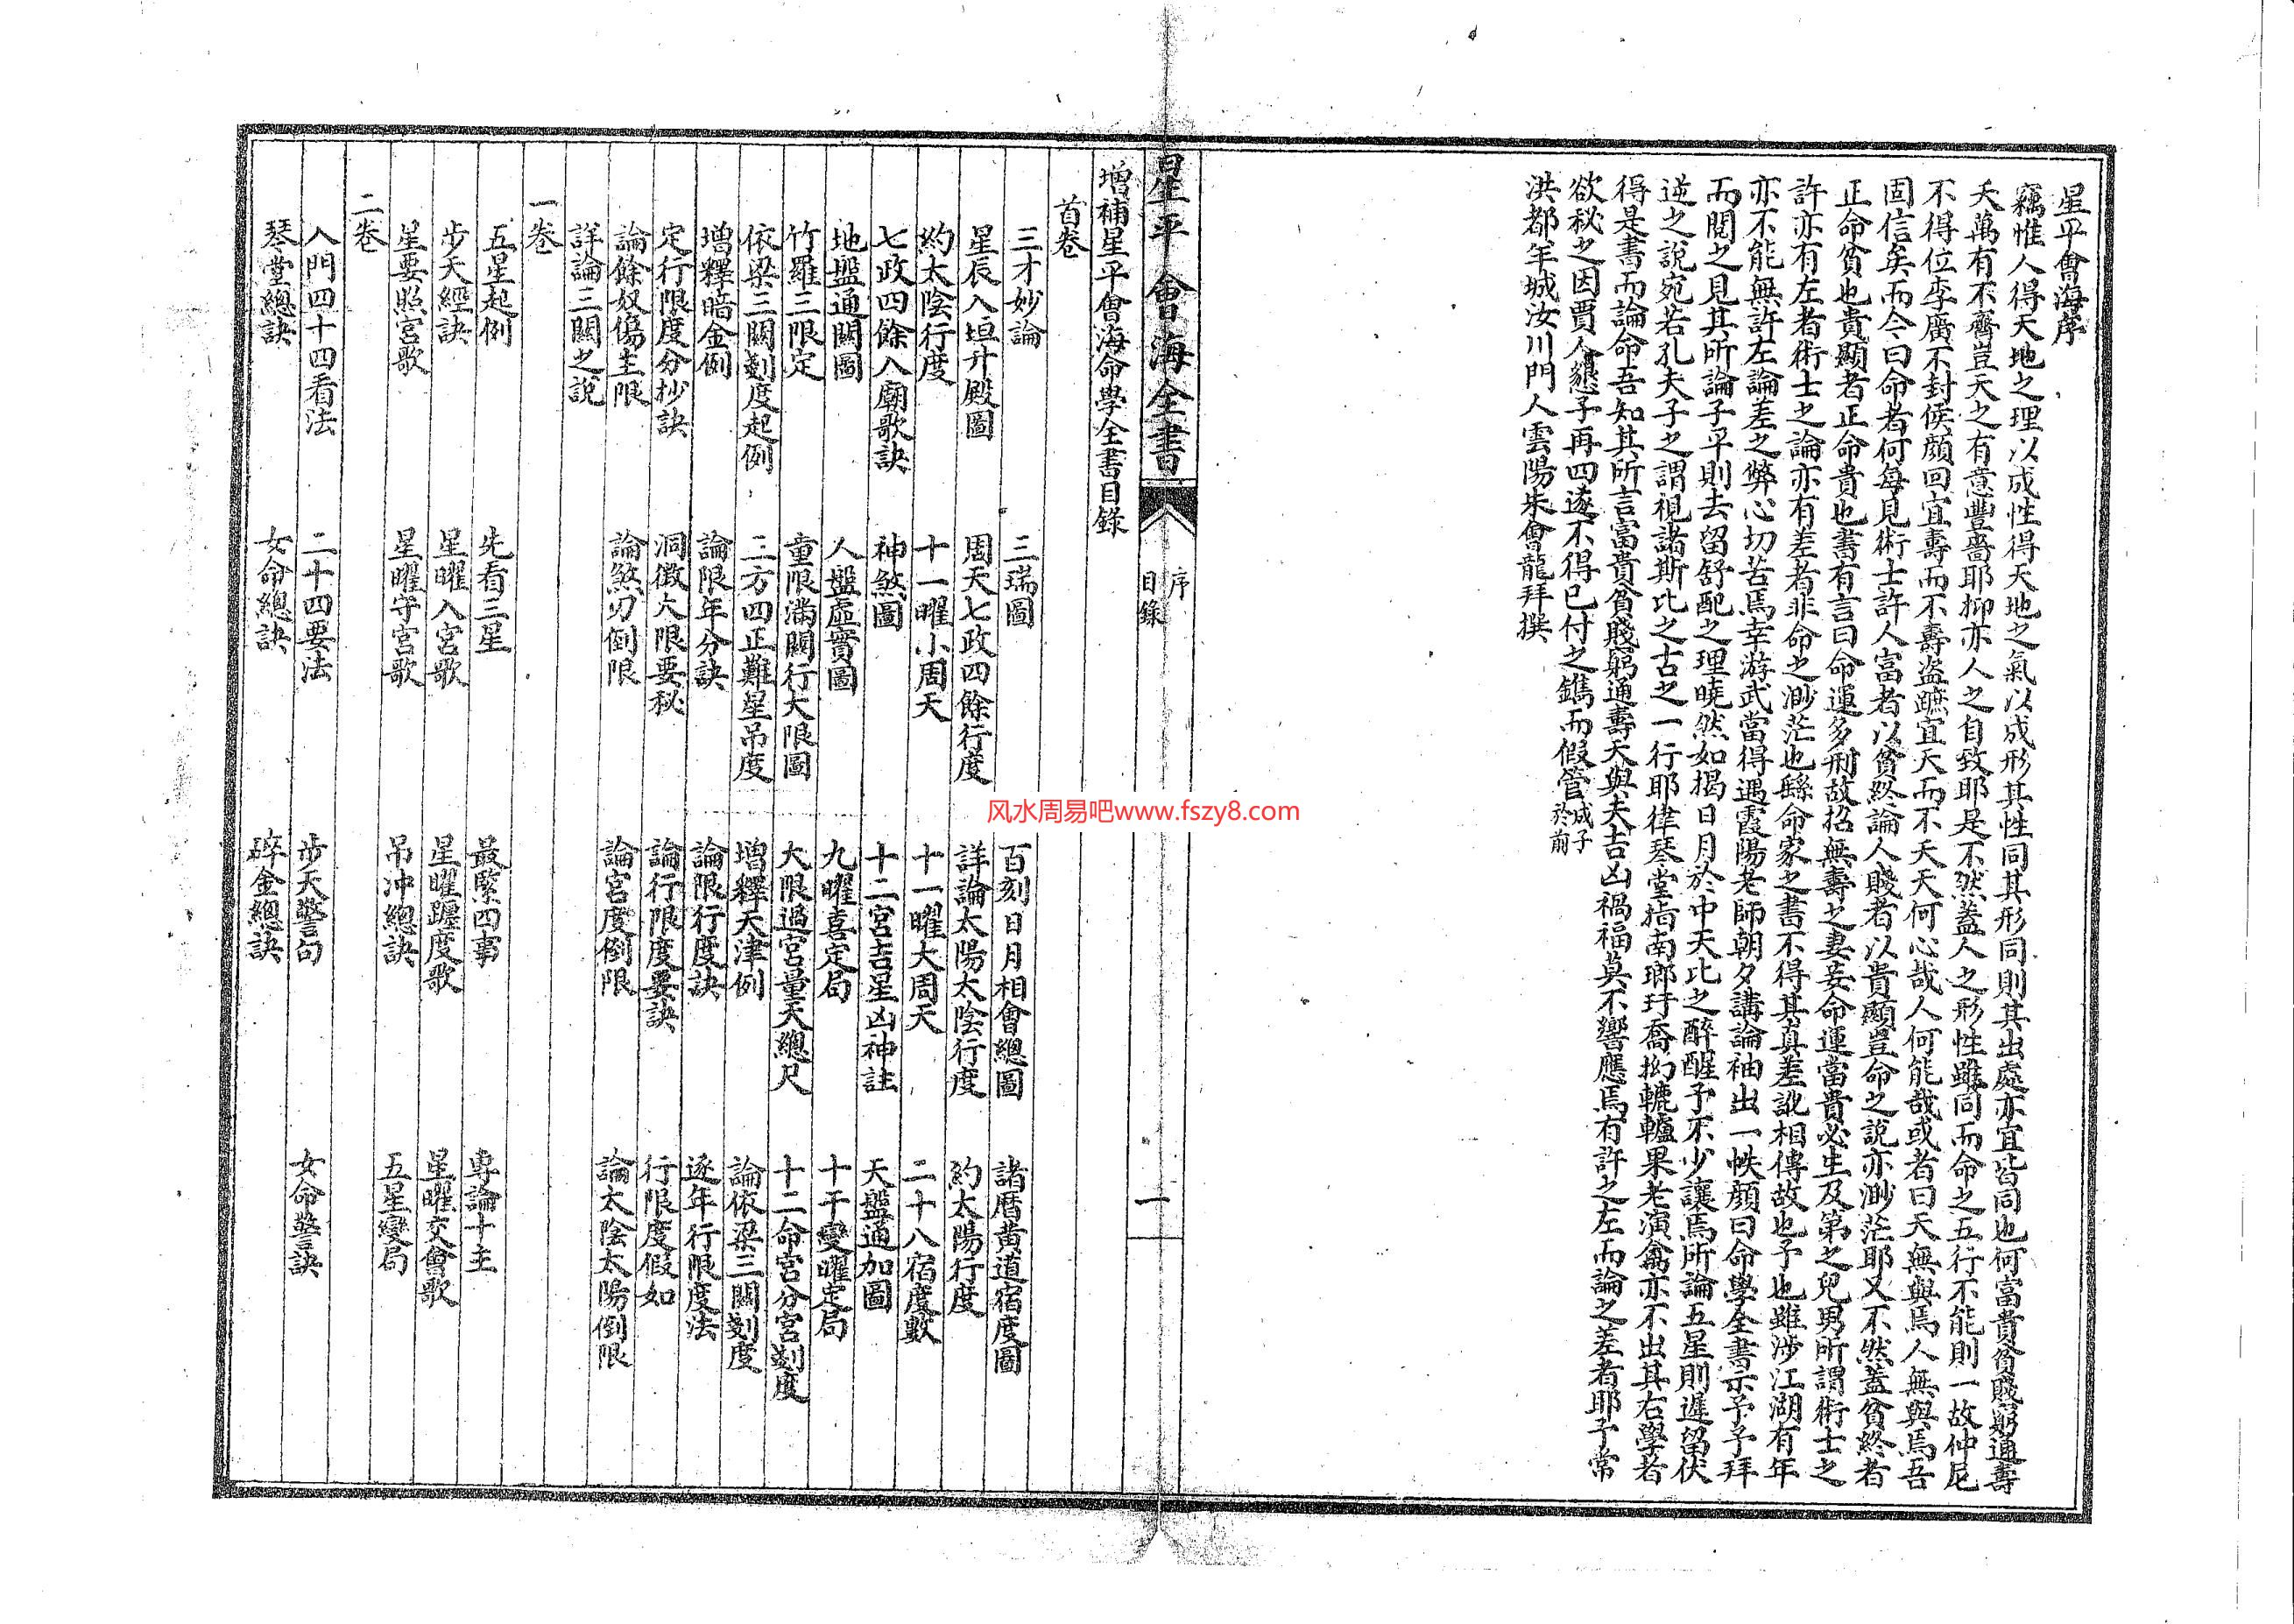 星平會海序
竊惟人得天地之理以成性得天地之氣以成形其性同其形同則其出處亦宜皆同也何富貴貧賤窮通壽
夭萬有不齊豈天之有意豐嗇耶抑亦人之自致耶是不然蓋人之形性雖同而命之五行不能則一故仲尼
不得位李廣不封侯顏回宜壽而不壽盜蹠宜夭而不夭天何心哉人何能哉或者曰天無與焉人無與焉吾
固信矣而今曰命者何每見術士許人富者以貧終論人賤者以貴顯豈命之說亦渺茫耶又不然蓋貧終者
正命貧也貴顯者正命貴也書有言曰命運多刑故招無壽之妻妾命運當貴必生及第之兒男所謂術士之
許亦有左者術士之論亦有差者非命之渺茫也繇命家之書不得其真差訛相傳故也予也雖涉江湖有年
亦不能無許左論差之弊心切苦焉幸游武當得遇霞陽老師朝夕講論袖出一帙顏曰命學全書示予予拜
而閱之見其所論子平則去留舒配之理曉然如揭日月於中天比之醉醒予不少讓焉所論五星則遲留伏
逆之說宛若孔夫子之謂視諸斯比之古之一行耶律琴堂指南瑯玕喬拗轆轤果老演禽亦不出其右學者
得是書而論命吾知其所言富貴貧賤窮通壽夭與夫吉凶禍福莫不響應焉有許之左而論之差者耶予常
欲秘之因賈人懇予再四遂不得已付之鐫而假管成子於前
洪都年城汝川門人雲陽朱會龍拜撰
星平會海全書 序 目錄 一
增補星平會海命學全書目錄
首卷
三才妙論 三瑞圖 百刻日月相會總圖 諸曆黃道宿度圖
星辰入垣升殿圖 周天七政四餘行度 詳論太陽太陰行度 約太陽行度
約太陰行度 十一曜小周天 十一曜大周天 二十八宿度數
七政四餘入廟歌訣 神煞圖 十二宮吉星凶神註 天盤通加圖
地盤通關圖 人盤虛實圖 九曜喜定局 十干變曜定局
竹羅三限定 童限滿關行大限圖 大限過宮量天總尺 十二命宮分宮剗度
依梁三關剗度起例 三方四正難星吊度 增釋天津例 論依梁三關剗度
增釋暗金例 論限年分訣 論限行度訣 逐年行限度法
定行限度分抄訣 洞微大限要秘 論行限度要訣 行限度假如
論餘奴傷主限 論煞刃倒限 論宮度倒限 論太陰太陽倒限
詳論三關之說
一卷
五星起例 先看三星 最緊四事 專論十主
步天經訣 星曜入宮歌 星曜躔度歌 星曜交會歌
星要照宮歌 星曜守宮歌 吊冲總訣 五星變局
二卷
入門四十四看法 二十四要法 步天警句 女命警訣
琴堂總訣 女命總訣 碎金總訣
风水周易吧www.fszy8.com